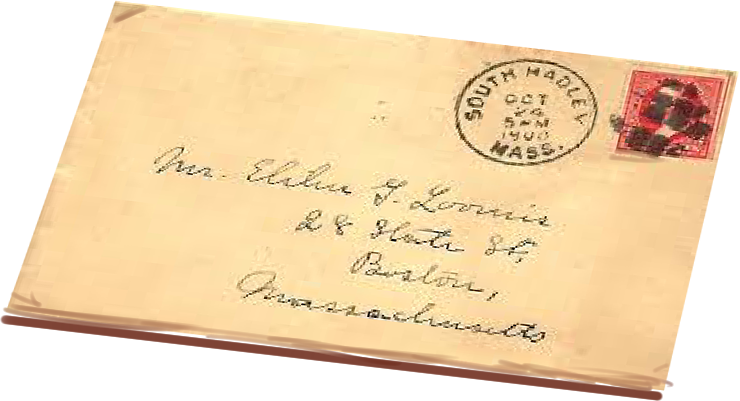 SOUTH HADLEY
OCT
24
5 PM
1900
MASS.
Mr. Elihu G. Loomis
28 State St,
Boston,
Massachusetts